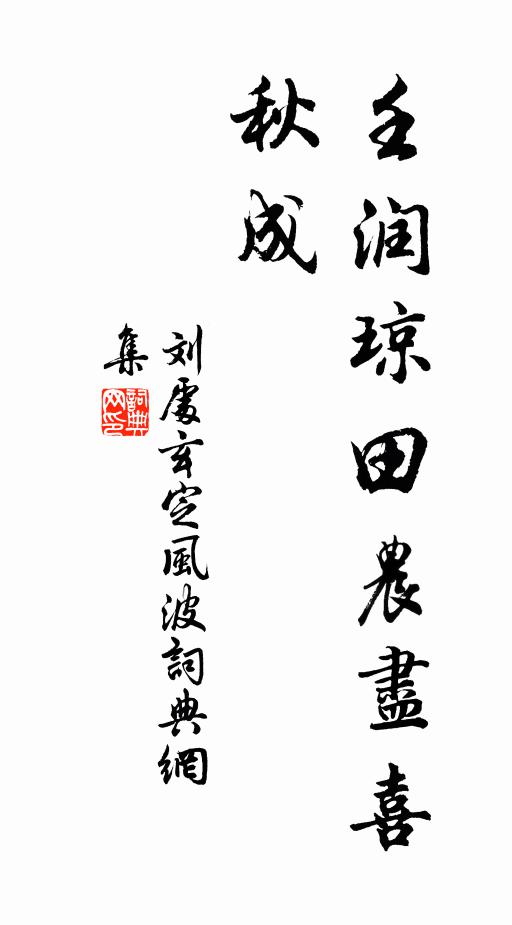 壬润琼田農盡喜
秋成
刘處玄定風波詞典網
集
詞典
网印